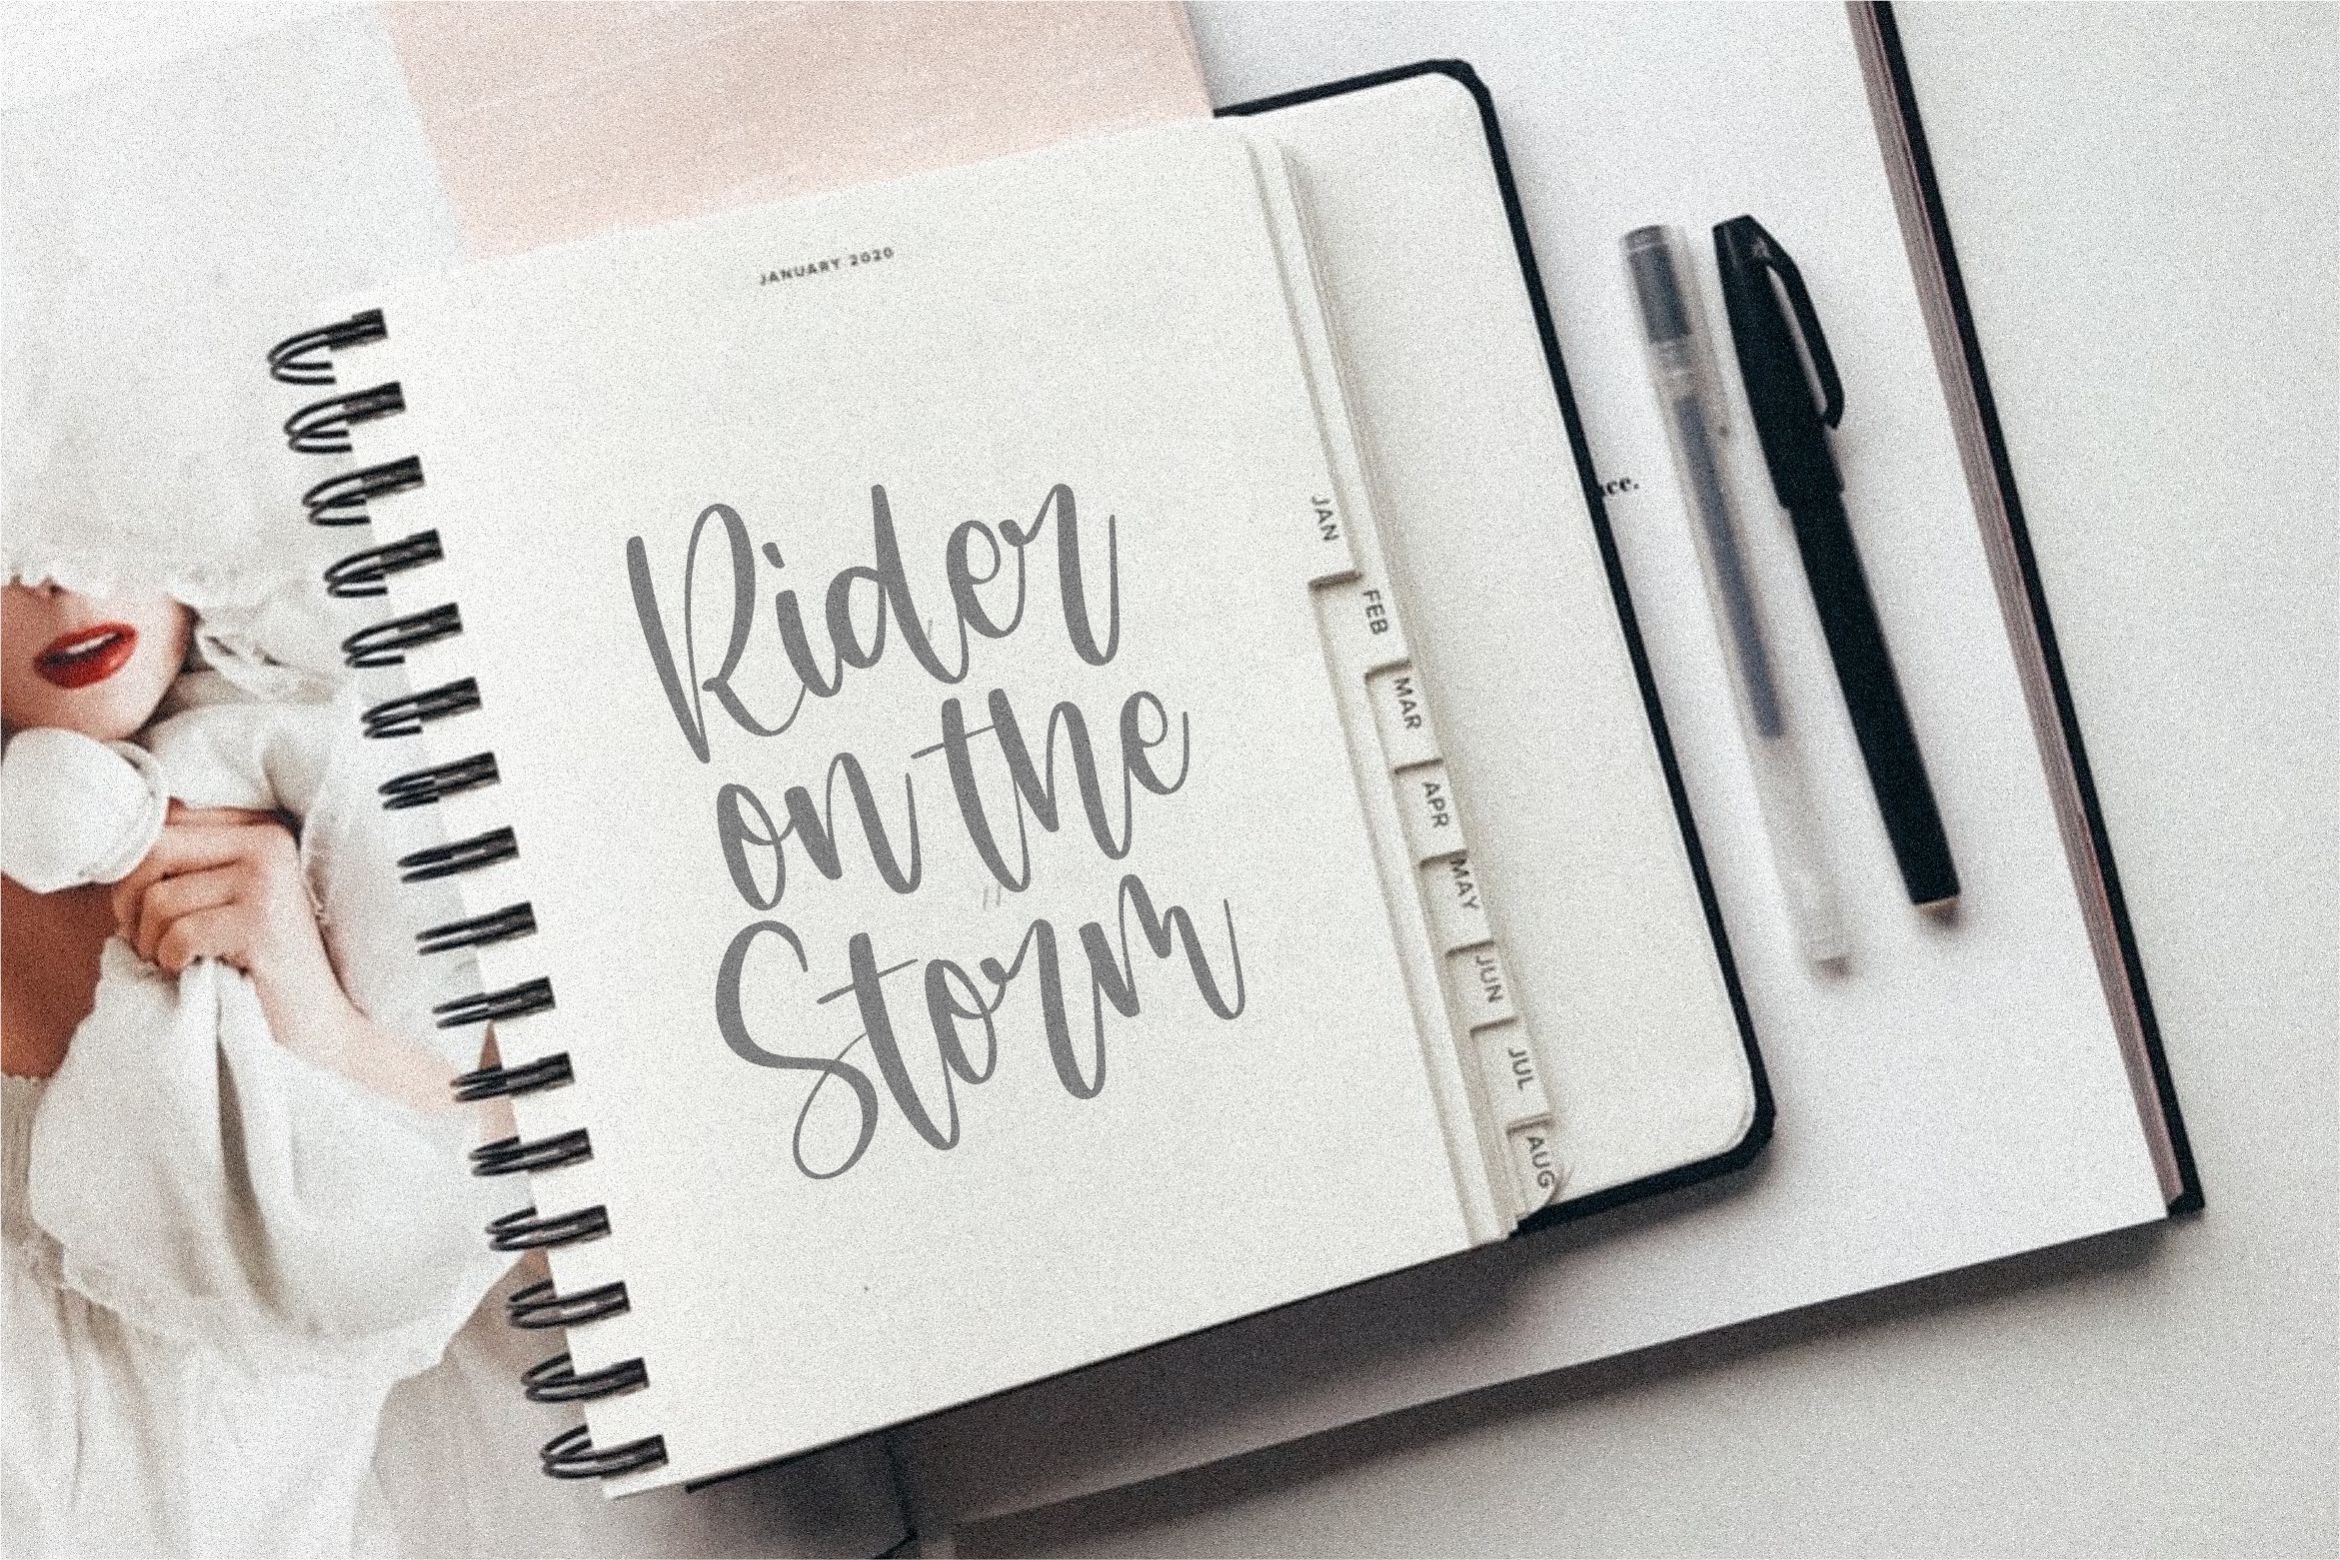 JANUARY 2020
Rider
on the
Storm
JAN
FEB
MAR
APR
MAY
JUN
JUL
AUG